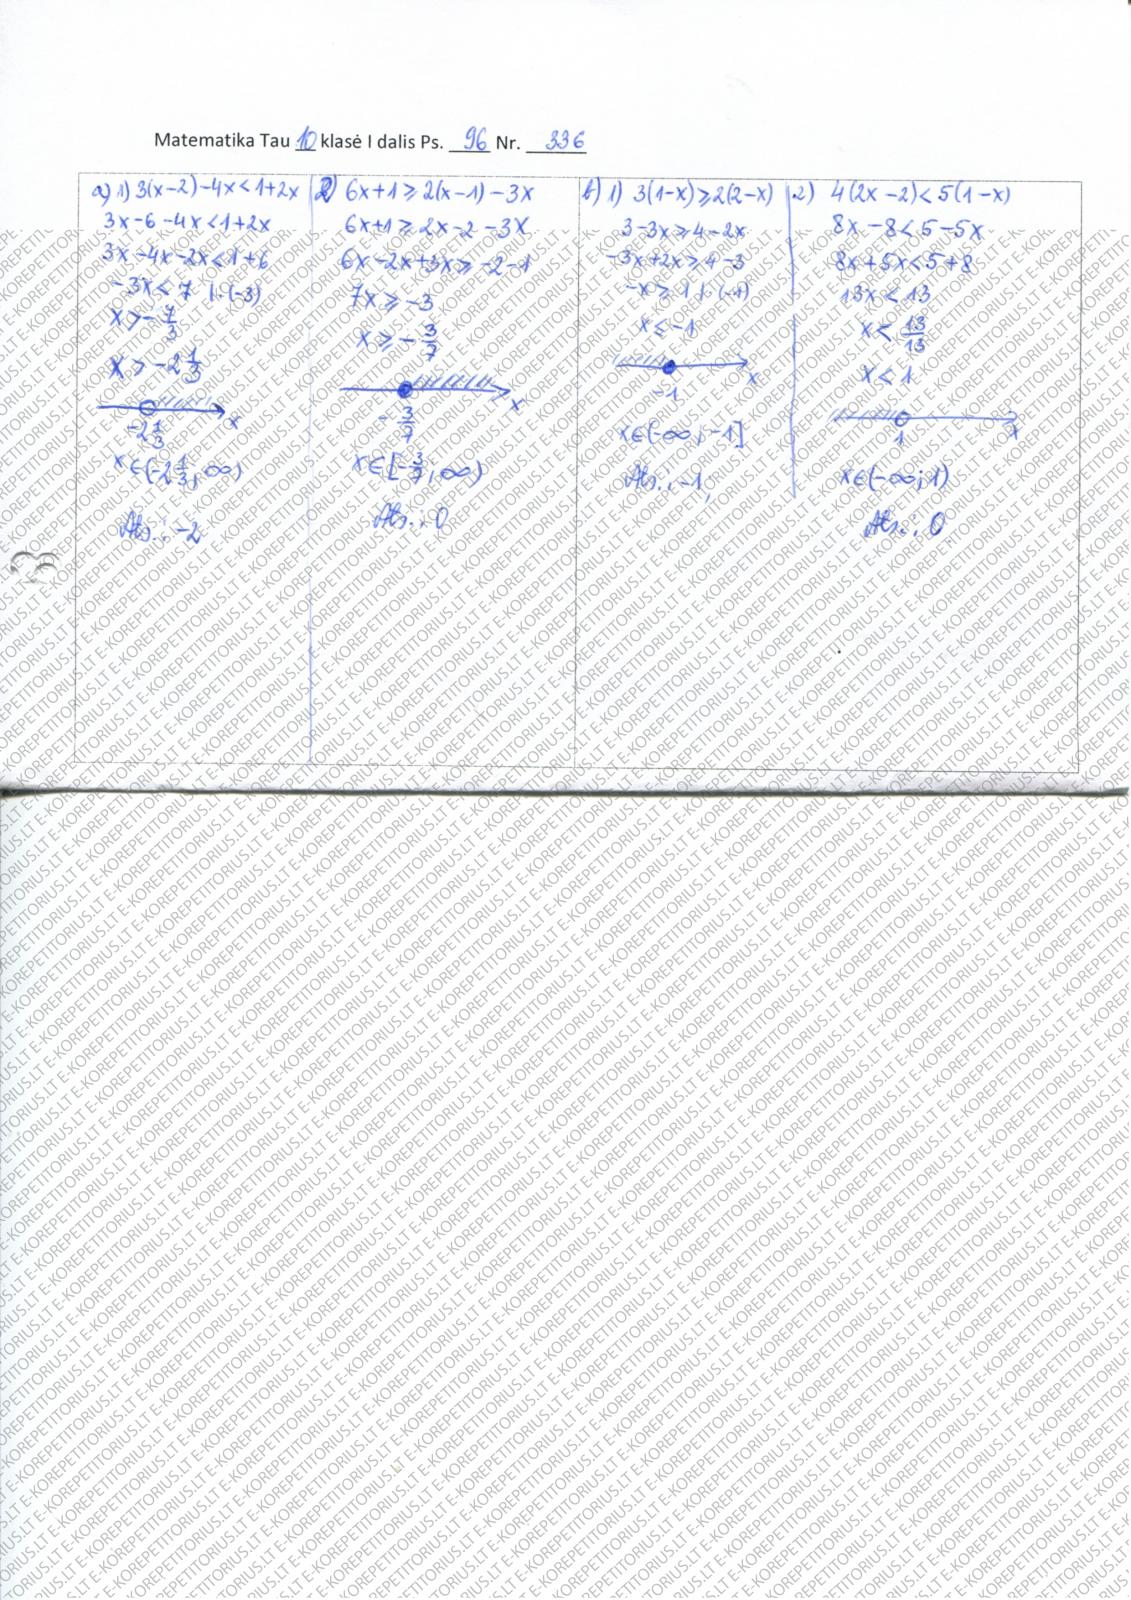 Matematika Tau 10 klasė I dalis Ps. 96 Nr. 336
a) 1) 3(x-2)-4x<1+2x
3x-6-4x<1+2x
3x-4x-2x<1+6
-3x<7 |·(-3)
x>-7/3
x>-2 1/3
-2 1/3
x
x∈(-2 1/3; ∞)
Ats.: -2
2) 6x+1⩾2(x-1)-3x
6x+1⩾2x-2-3x
6x-2x+3x⩾-2-1
7x⩾-3
x⩾-3/7
-3/7
x
x∈[-3/7; ∞)
Ats.: 0
b) 1) 3(1-x)⩾2(2-x)
3-3x⩾4-2x
-3x+2x⩾4-3
-x⩾1 |·(-1)
x⩽-1
-1
x
x∈(-∞; -1]
Ats.: -1
2) 4(2x-2)<5(1-x)
8x-8<5-5x
8x+5x<5+8
13x<13
x<13/13
x<1
1
x
x∈(-∞; 1)
Ats.: 0
E-KOREPETITORIUS.LT